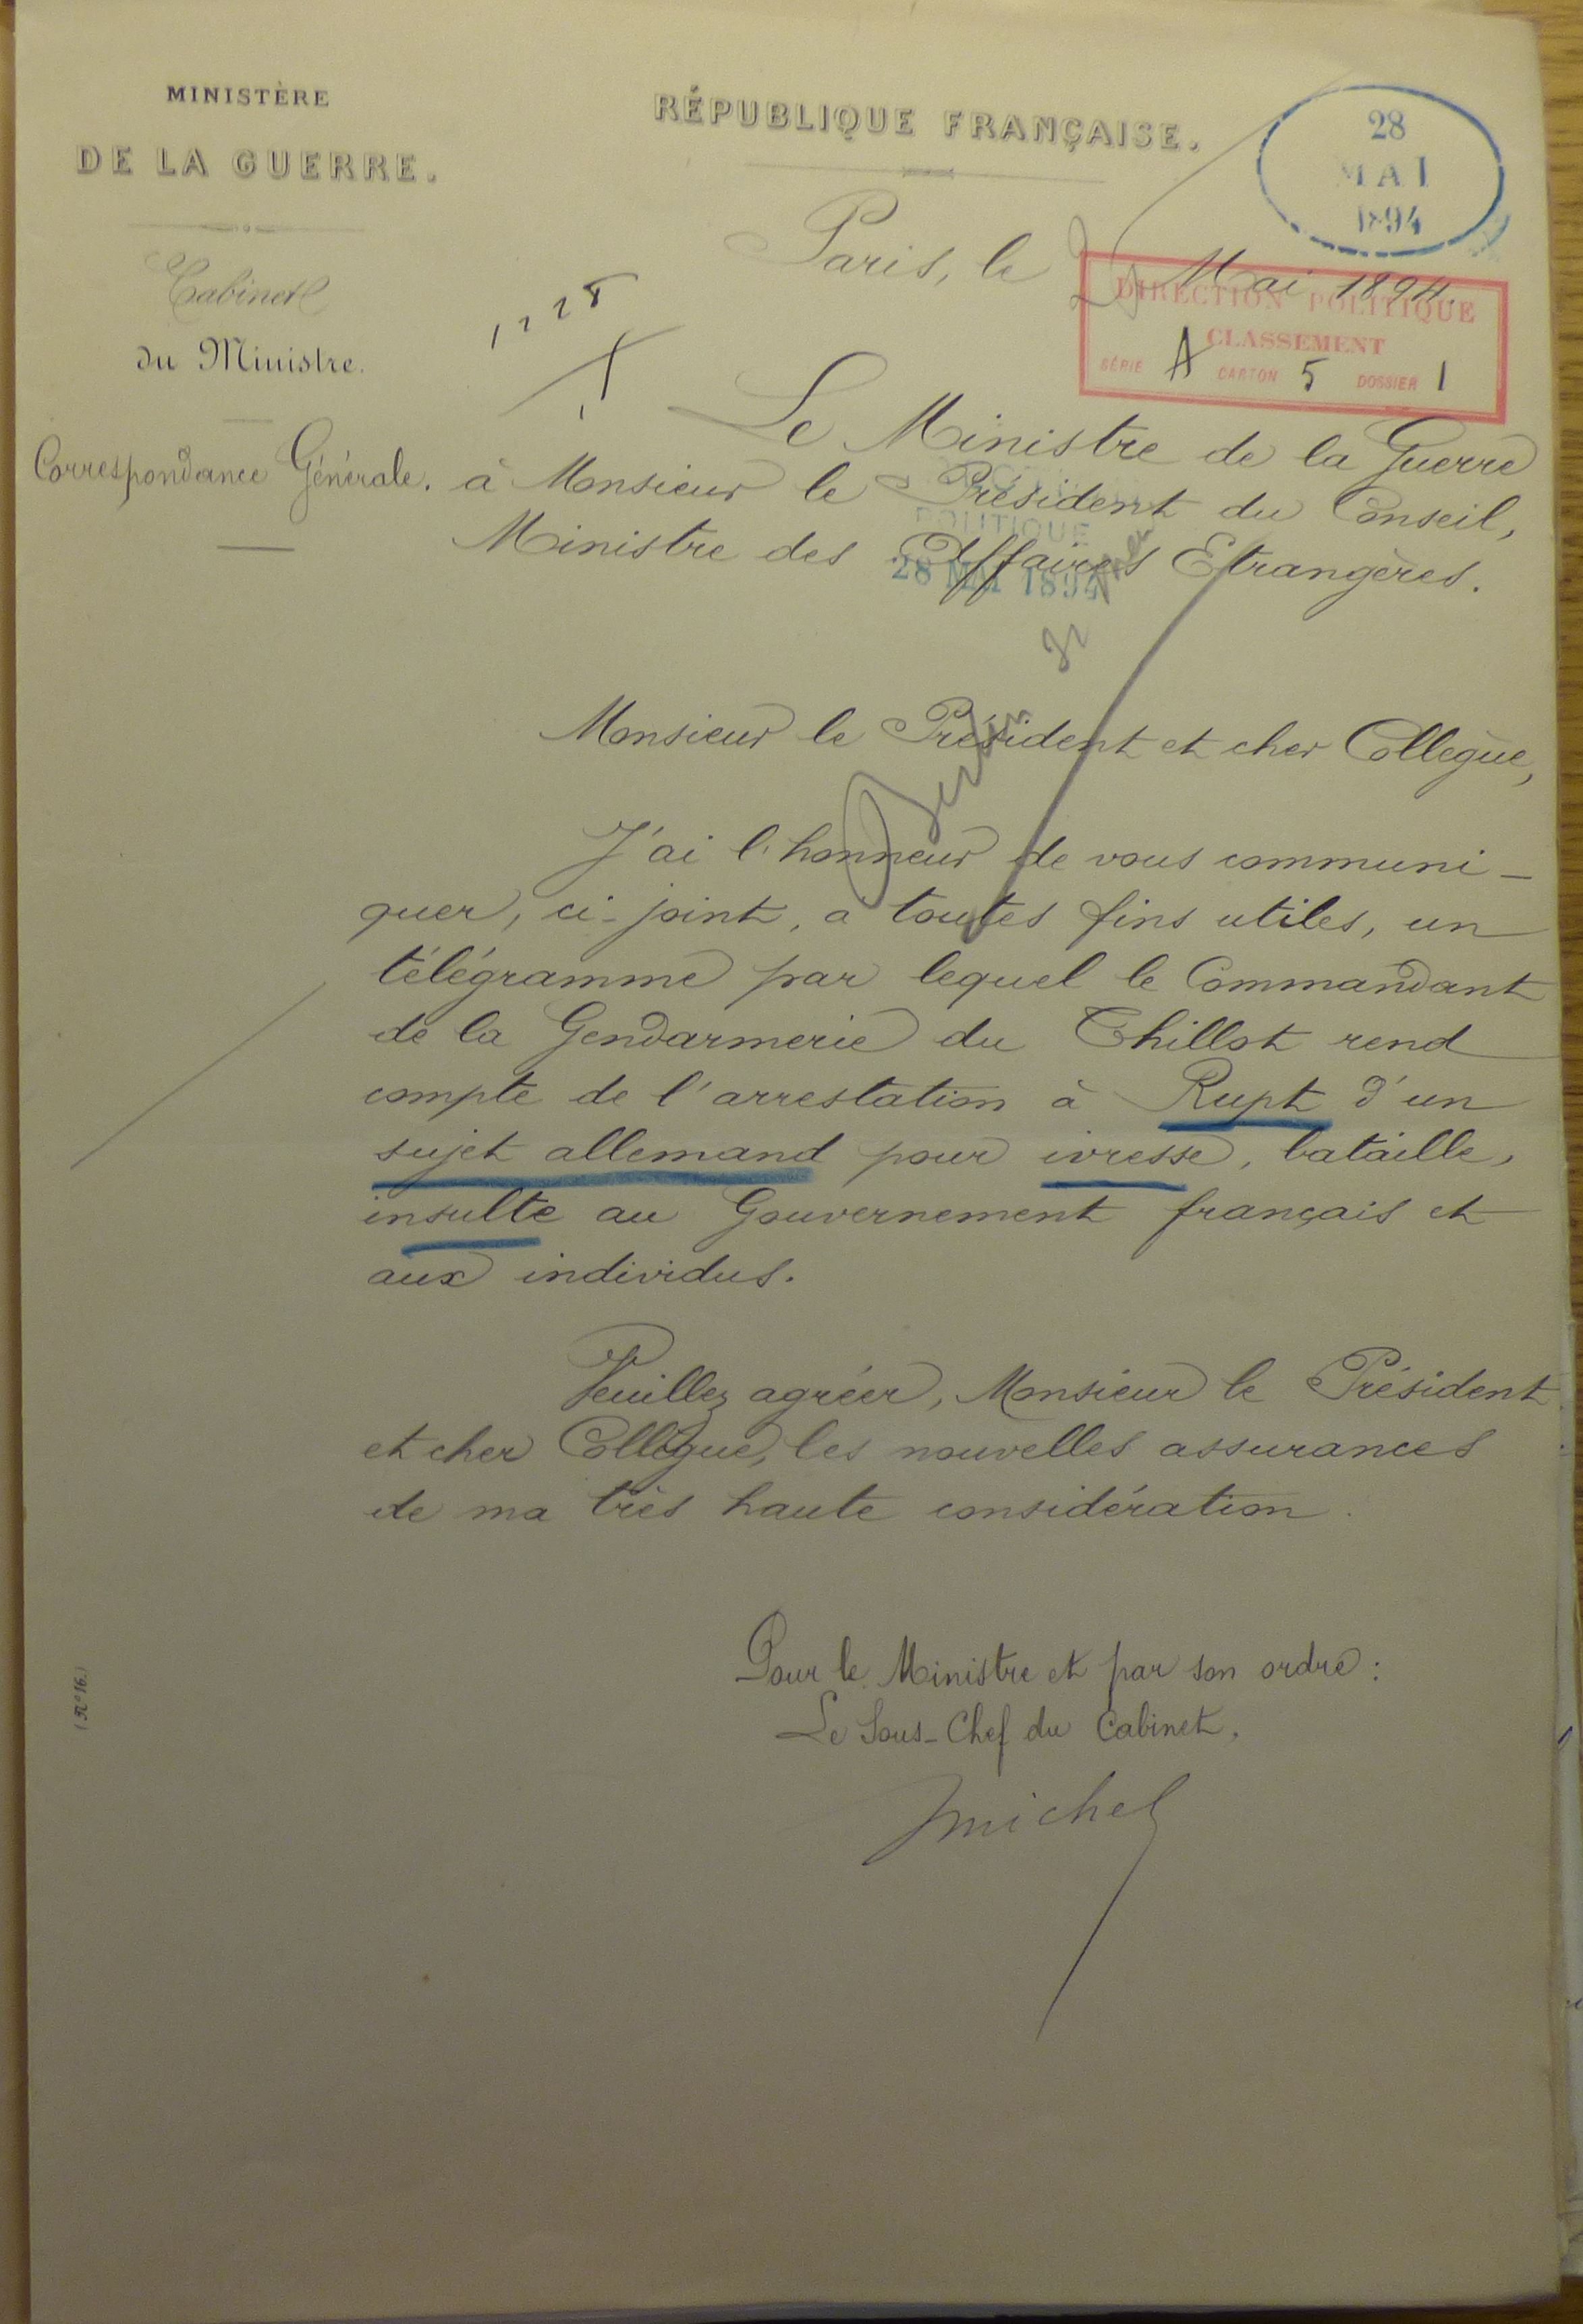 MINISTÈRE
DE LA GUERRE.
Cabinet
du Ministre.
Correspondance Générale.
RÉPUBLIQUE FRANÇAISE.
28
MAI
1894
Paris, le Mai 1894.
DIRECTION POLITIQUE
CLASSEMENT
SÉRIE A CARTON 5 DOSSIER 1
Le Ministre de la Guerre
à Monsieur le Président du Conseil,
Ministre des Affaires Etrangères.
POLITIQUE
28 MAI 1894
Monsieur le Président et cher Collègue,
J'ai l'honneur de vous communi-
quer, ci-joint, à toutes fins utiles, un
télégramme par lequel le Commandant
de la Gendarmerie du Thillot rend
compte de l'arrestation à Rupt d'un
sujet allemand pour ivresse, bataille,
insulte au Gouvernement français et
aux individus.
Veuillez agréer, Monsieur le Président
et cher Collègue, les nouvelles assurances
de ma très haute considération.
Pour le Ministre et par son ordre:
Le Sous-Chef du Cabinet,
Michel
(N° 16.)